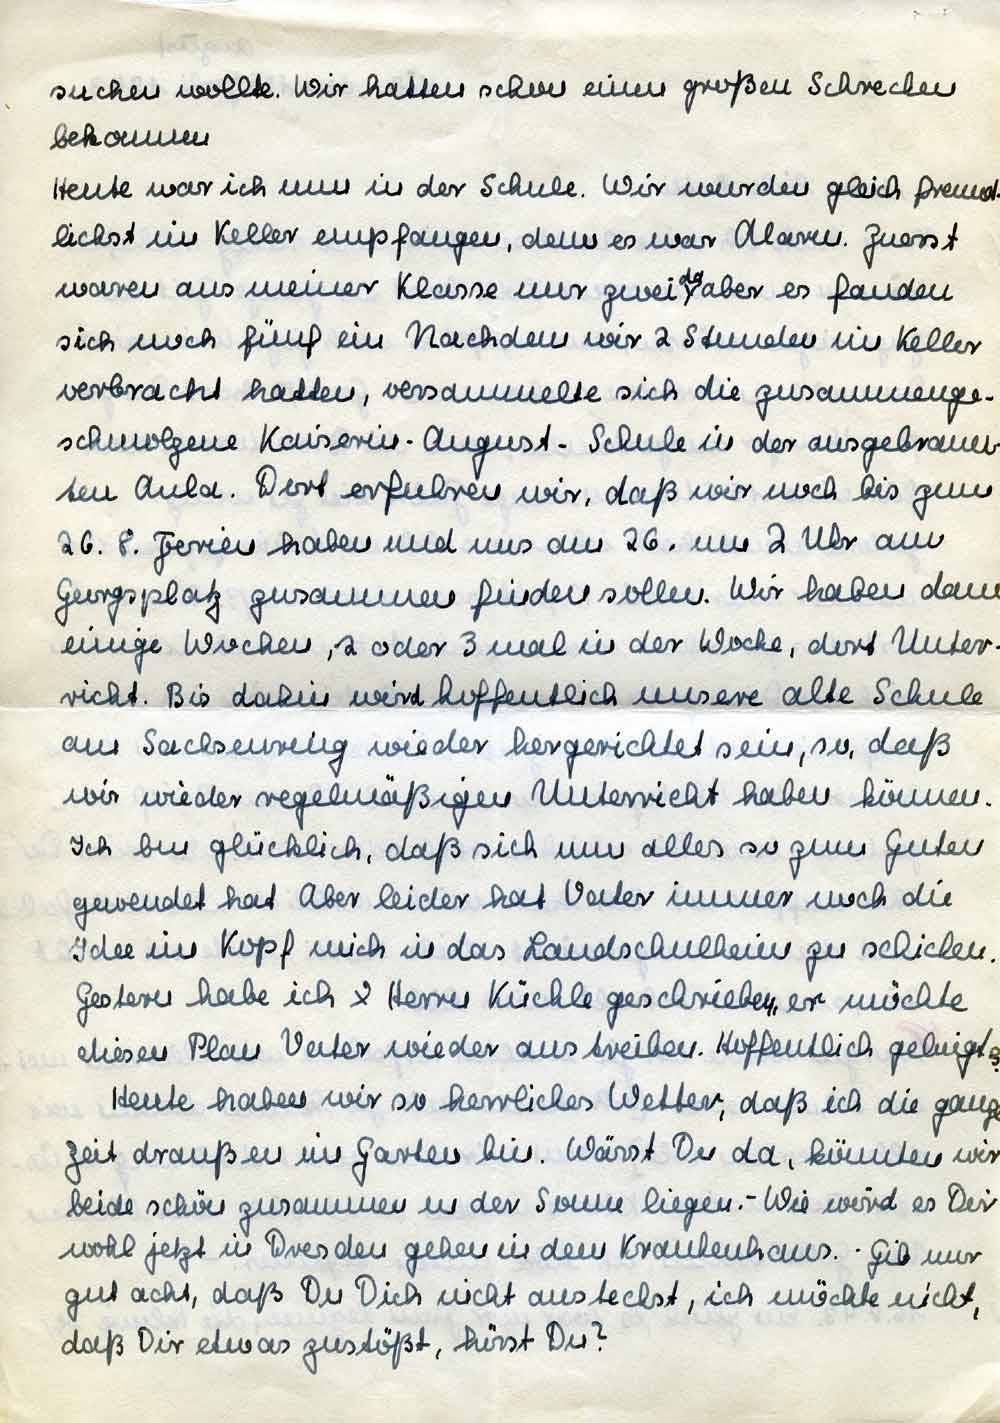 suchen wollte. Wir hatten schon einen großen Schrecken
bekommen
Heute war ich nun in der Schule. Wir wurden gleich freund-
lichst im Keller empfangen, denn es war Alarm. Zuerst
waren aus meiner Klasse nur zwei da, aber es fanden
sich noch fünf ein Nachdem wir 2 Stunden im Keller
verbracht hatten, versammelte sich die zusammenge-
schmolzene Kaiserin-August-Schule in der ausgebrann-
ten Aula. Dort erfuhren wir, daß wir noch bis zum
26. 8. Ferien haben und uns am 26. um 2 Uhr am
Georgsplatz zusammen finden sollen. Wir haben dann
einige Wochen, 2 oder 3 mal in der Woche, dort Unter-
richt. Bis dahin wird hoffentlich unsere alte Schule
am Sachsenring wieder hergerichtet sein, so, daß
wir wieder regelmäßigen Unterricht haben können.
Ich bin glücklich, daß sich nun alles so zum Guten
gewendet hat Aber leider hat Vater immer noch die
Idee im Kopf mich in das Landschulheim zu schicken.
Gestern habe ich Herrn Küchle geschrieben, er möchte
diesen Plan Vater wieder austreiben. Hoffentlich gelingt's
Heute haben wir so herrliches Wetter, daß ich die ganze
Zeit draußen im Garten bin. Wärst Du da, könnten wir
beide schön zusammen in der Sonne liegen.- Wie wird es Dir
wohl jetzt in Dresden gehen in dem Krankenhaus. - Gib nur
gut acht, daß Du Dich nicht ansteckst, ich möchte nicht,
daß Dir etwas zustößt, hörst Du?